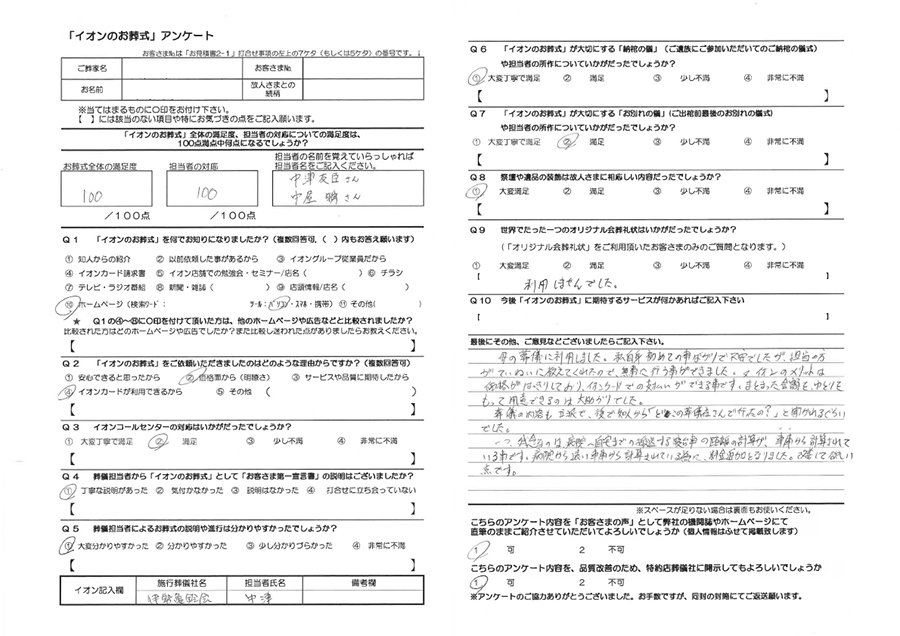 「イオンのお葬式」アンケート
お客さま№は「お見積書2-1」打合せ事項の左上の7ケタ（もしくは5ケタ）の番号です。↓
ご葬家名 お客さま№
お名前 故人さまとの続柄
※当てはまるものに〇印をお付け下さい。
【 】には該当のない項目や特にお気づきの点をご記入願います。
「イオンのお葬式」全体の満足度、担当者の対応についての満足度は、
100点満点中何点になるでしょうか？
お葬式全体の満足度 担当者の対応 担当者の名前を覚えていらっしゃれば
担当者名をご記入ください。
100 100 中津 さん
中屋 さん
／100点 ／100点
Q1 「イオンのお葬式」を何でお知りになりましたか？（複数回答可、（ ）内もお答え願います）
① 知人からの紹介 ② 以前依頼した事があるから ③ イオングループ従業員だから
④ イオンカード請求書 ⑤ イオン店舗での勉強会・セミナー/店名（ ）⑥ チラシ
⑦ テレビ・ラジオ番組 ⑧ 新聞・雑誌（ ）⑨ 店頭情報/店名（ ）
⑩ ホームページ（検索ワード： ツール：パソコン・スマホ・携帯）⑪ その他（ ）
★ Q1の④～⑪に〇印を付けて頂いた方は、他のホームページや広告などと比較されましたか？
比較された方はどのホームページや広告でしたか？また比較し迷われた点がありましたらお教えください。
【 】
Q2 「イオンのお葬式」をご依頼いただきましたのはどのような理由からですか？（複数回答可）
① 安心できると思ったから ② 価格面から（明瞭さ） ③ サービスや品質に期待したから
④ イオンカードが利用できるから ⑤ その他（ ）
【 】
Q3 イオンコールセンターの対応はいかがだったでしょうか？
① 大変丁寧で満足 ② 満足 ③ 少し不満 ④ 非常に不満
【 】
Q4 葬儀担当者から「イオンのお葬式」として「お客さま第一宣言書」の説明はございましたか？
① 丁寧な説明があった ② 気付かなかった ③ 説明はなかった ④ 打合せに立ち会っていない
【 】
Q5 葬儀担当者によるお葬式の説明や進行は分かりやすかったでしょうか？
① 大変分かりやすかった ② 分かりやすかった ③ 少し分かりづらかった ④ 非常に不満
【 】
イオン記入欄 施行葬儀社名 担当者氏名 備考欄
中津
Q6 「イオンのお葬式」が大切にする「納棺の儀」（ご遺族にご参加いただいてのご納棺の儀式）
や担当者の所作についていかがだったでしょうか？
① 大変丁寧で満足 ② 満足 ③ 少し不満 ④ 非常に不満
【 】
Q7 「イオンのお葬式」が大切にする「お別れの儀」（ご出棺前最後のお別れの儀式）
や担当者の所作についていかがだったでしょうか？
① 大変丁寧で満足 ② 満足 ③ 少し不満 ④ 非常に不満
【 】
Q8 祭壇や遺品の装飾は故人さまに相応しい内容だったでしょうか？
① 大変満足 ② 満足 ③ 少し不満 ④ 非常に不満
【 】
Q9 世界でたった一つのオリジナル会葬礼状はいかがだったでしょうか？
（「オリジナル会葬礼状」をご利用頂いたお客さまのみのご質問となります。）
① 大変満足 ② 満足 ③ 少し不満 ④ 非常に不満
【 利用しませんでした。 】
Q10 今後「イオンのお葬式」に期待するサービスが何かあればご記入下さい
【 】
最後にその他、ご意見などございましたらご記入下さい。
母の葬儀に利用しました。私自身初めての事ばかりで不安でしたが、担当の方
がていねいに教えてくれたので、無事に行う事ができました。イオンのメリットは
価格がはっきりしており、イオンカードでの支払いができる事です。まとまった金額を、ゆとりを
もって用意できるのは大助かりでした。
葬儀の内容も立派で、後で知人から「どこの葬儀屋さんで行ったの？」と聞かれるぐらい
でした。
一つ、残念なのは、病院～自宅までの搬送する寝台車の距離の計算が、車庫から計算されて
いる事です。病院から遠い車庫から計算されている為に、料金追加となりました。改善して欲しい
点です。
※スペースが足りない場合は裏面もお使いください。
こちらのアンケート内容を「お客さまの声」として弊社の機関誌やホームページにて
直筆のままご紹介させていただいてよろしいでしょうか（個人情報はふせて掲載致します）
1 可 2 不可
こちらのアンケート内容を、品質改善のため、特約店葬儀社に開示してもよろしいでしょうか
1 可 2 不可
※アンケートのご協力ありがとうございました。お手数ですが、同封の封筒にてご返送願います。